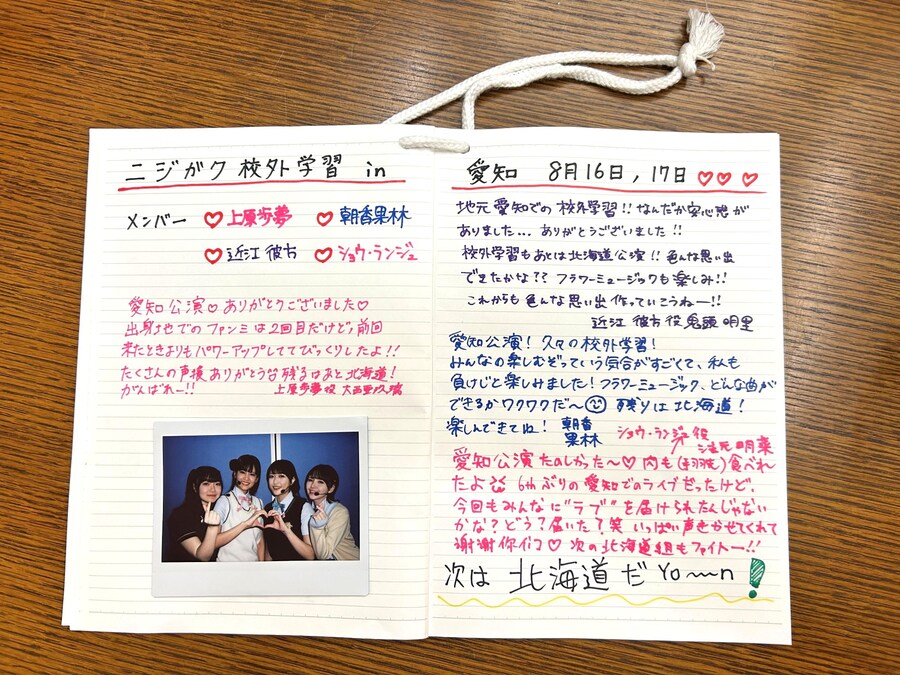 ニジガク校外学習 in
メンバー ♡上原歩夢 ♡朝香果林
♡近江彼方 ♡ショウ・ランジュ
愛知公演♡ありがとうございました♡
出身地でのファンミは2回目だけど、前回
来たときよりもパワーアップしててびっくりしたよ!!
たくさんの声援ありがとう 残るはあと北海道!
がんばれー!! 上原歩夢役 大西亜玖璃
愛知 8月16日,17日 ♡♡♡
地元愛知での校外学習!! なんだか安心感が
ありました... ありがとうございました!!
校外学習もあとは北海道公演!! 色んな思い出
できたかな?? フラワーミュージックも楽しみ!!
これからも色んな思い出作っていこうねー!!
近江彼方役 鬼頭明里
愛知公演! 久々の校外学習!
みんなの楽しむぞっていう気合がすごくて、私も
負けじと楽しみました! フラワーミュージック、どんな曲が
できるかワクワクだ〜 残りは北海道!
楽しんできてね! 朝香果林
ショウ・ランジュ役 法元明菜
愛知公演たのしかった〜♡ 肉も(手羽先)食べれ
たよ 6thぶりの愛知でのライブだったけど、
今回もみんなに"ラブ"を届けられたんじゃない
かな? どう? 届いた? 笑 いっぱい声きかせてくれて
谢谢你们♡ 次の北海道組もファイトー!!
次は 北海道だ Yo〜n!